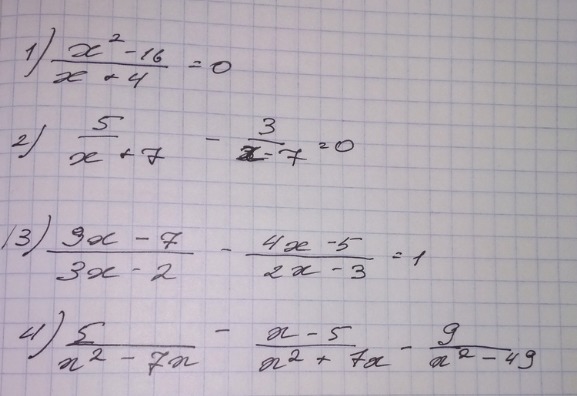 1) (x² - 16)/(x + 4) = 0
2) 5/(x + 7) - 3/(x - 7) = 0
3) (9x - 7)/(3x - 2) - (4x - 5)/(2x - 3) = 1
4) 5/(x² - 7x) - (x - 5)/(x² + 7x) - 9/(x² - 49)